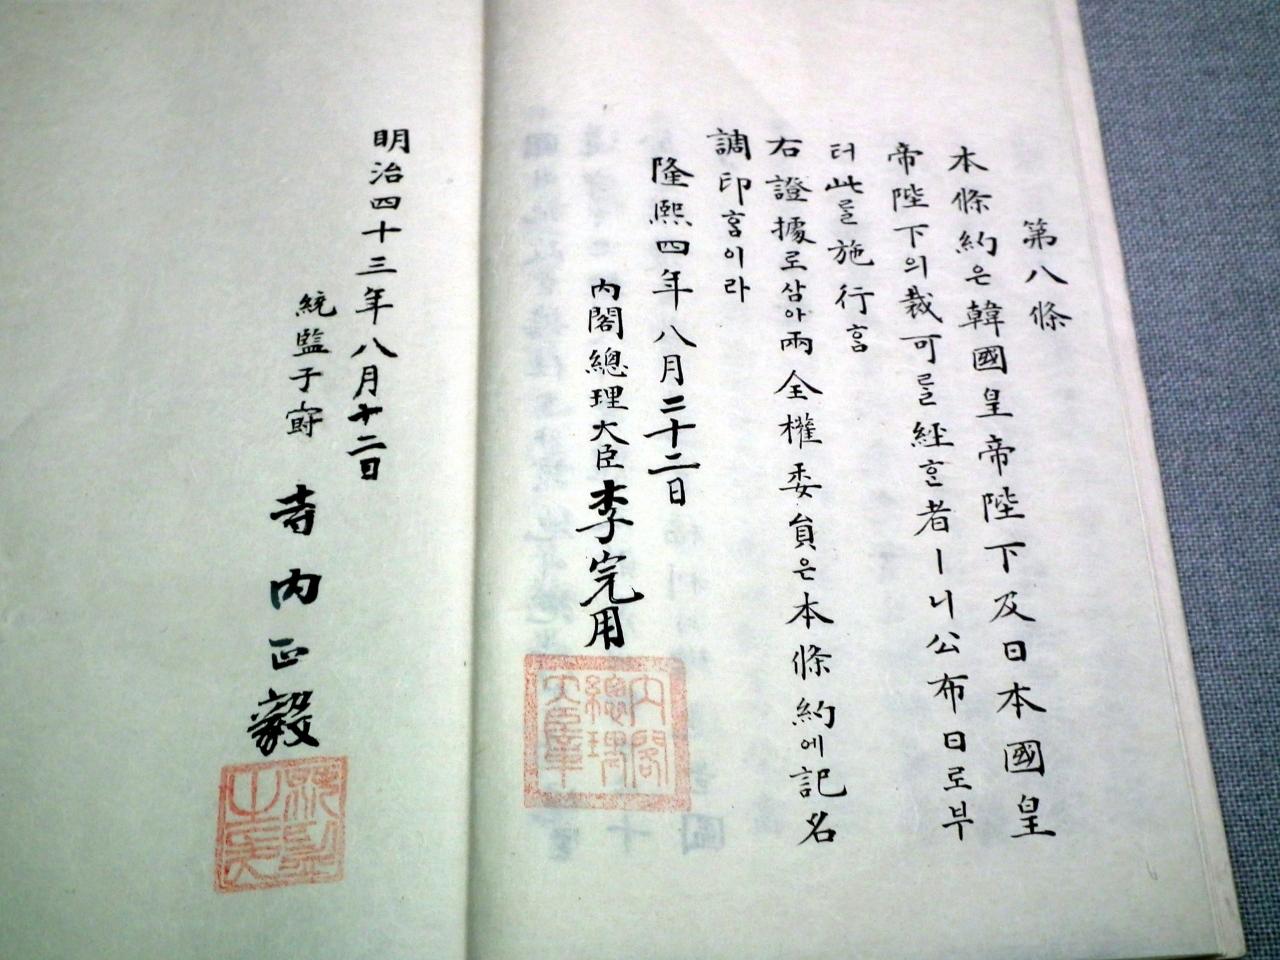 第八條
本條約은韓國皇帝陛下及日本國皇
帝陛下의裁可를經ᄒᆞᆫ者ㅣ니公布日로부
터此를施行홈
右證據로삼아兩全權委員은本條約에記名
調印홈이라
隆熙四年八月二十二日
內閣總理大臣李完用
內閣總理大臣章
明治四十三年八月廿二日
統監子爵 寺內正毅